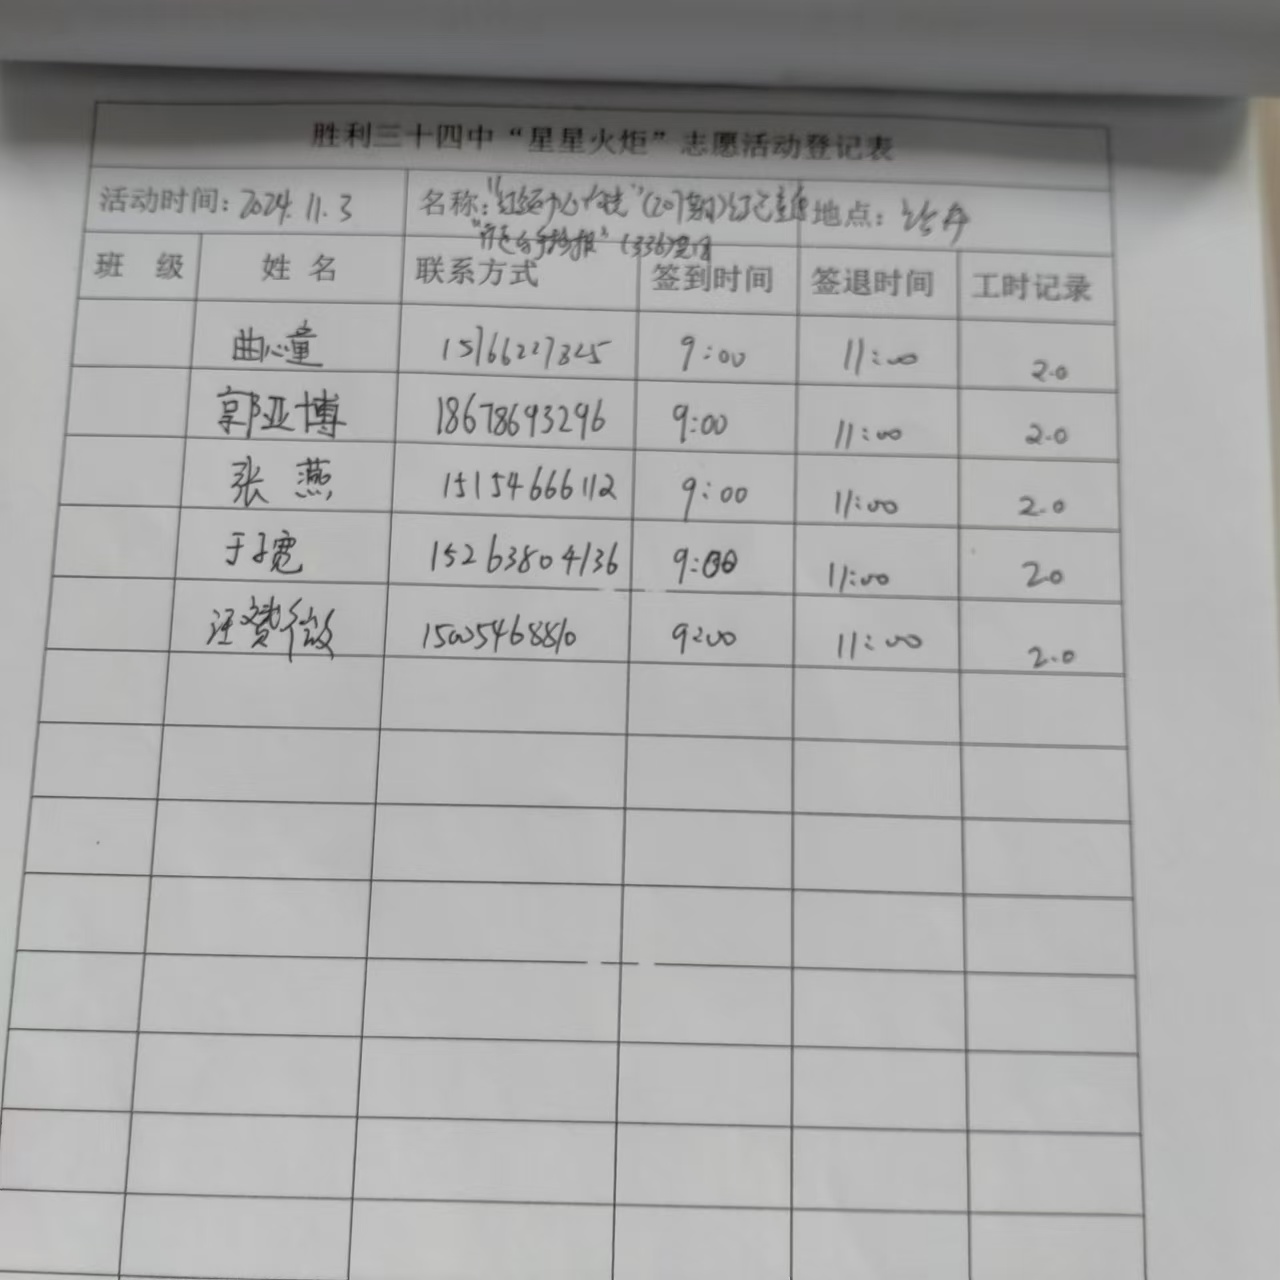 胜利三十四中“星星火炬”志愿活动登记表
活动时间：2024.11.3 名称： (207期) 地点：
(336)
班 级 姓 名 联系方式 签到时间 签退时间 工时记录
曲心童 15166227325 9:00 11:00 2.0
郭亚博 18678693296 9:00 11:00 2.0
张 燕 15154666112 9:00 11:00 2.0
于子宽 15263804136 9:00 11:00 20
汪赟微 15005468810 9:00 11:00 2.0